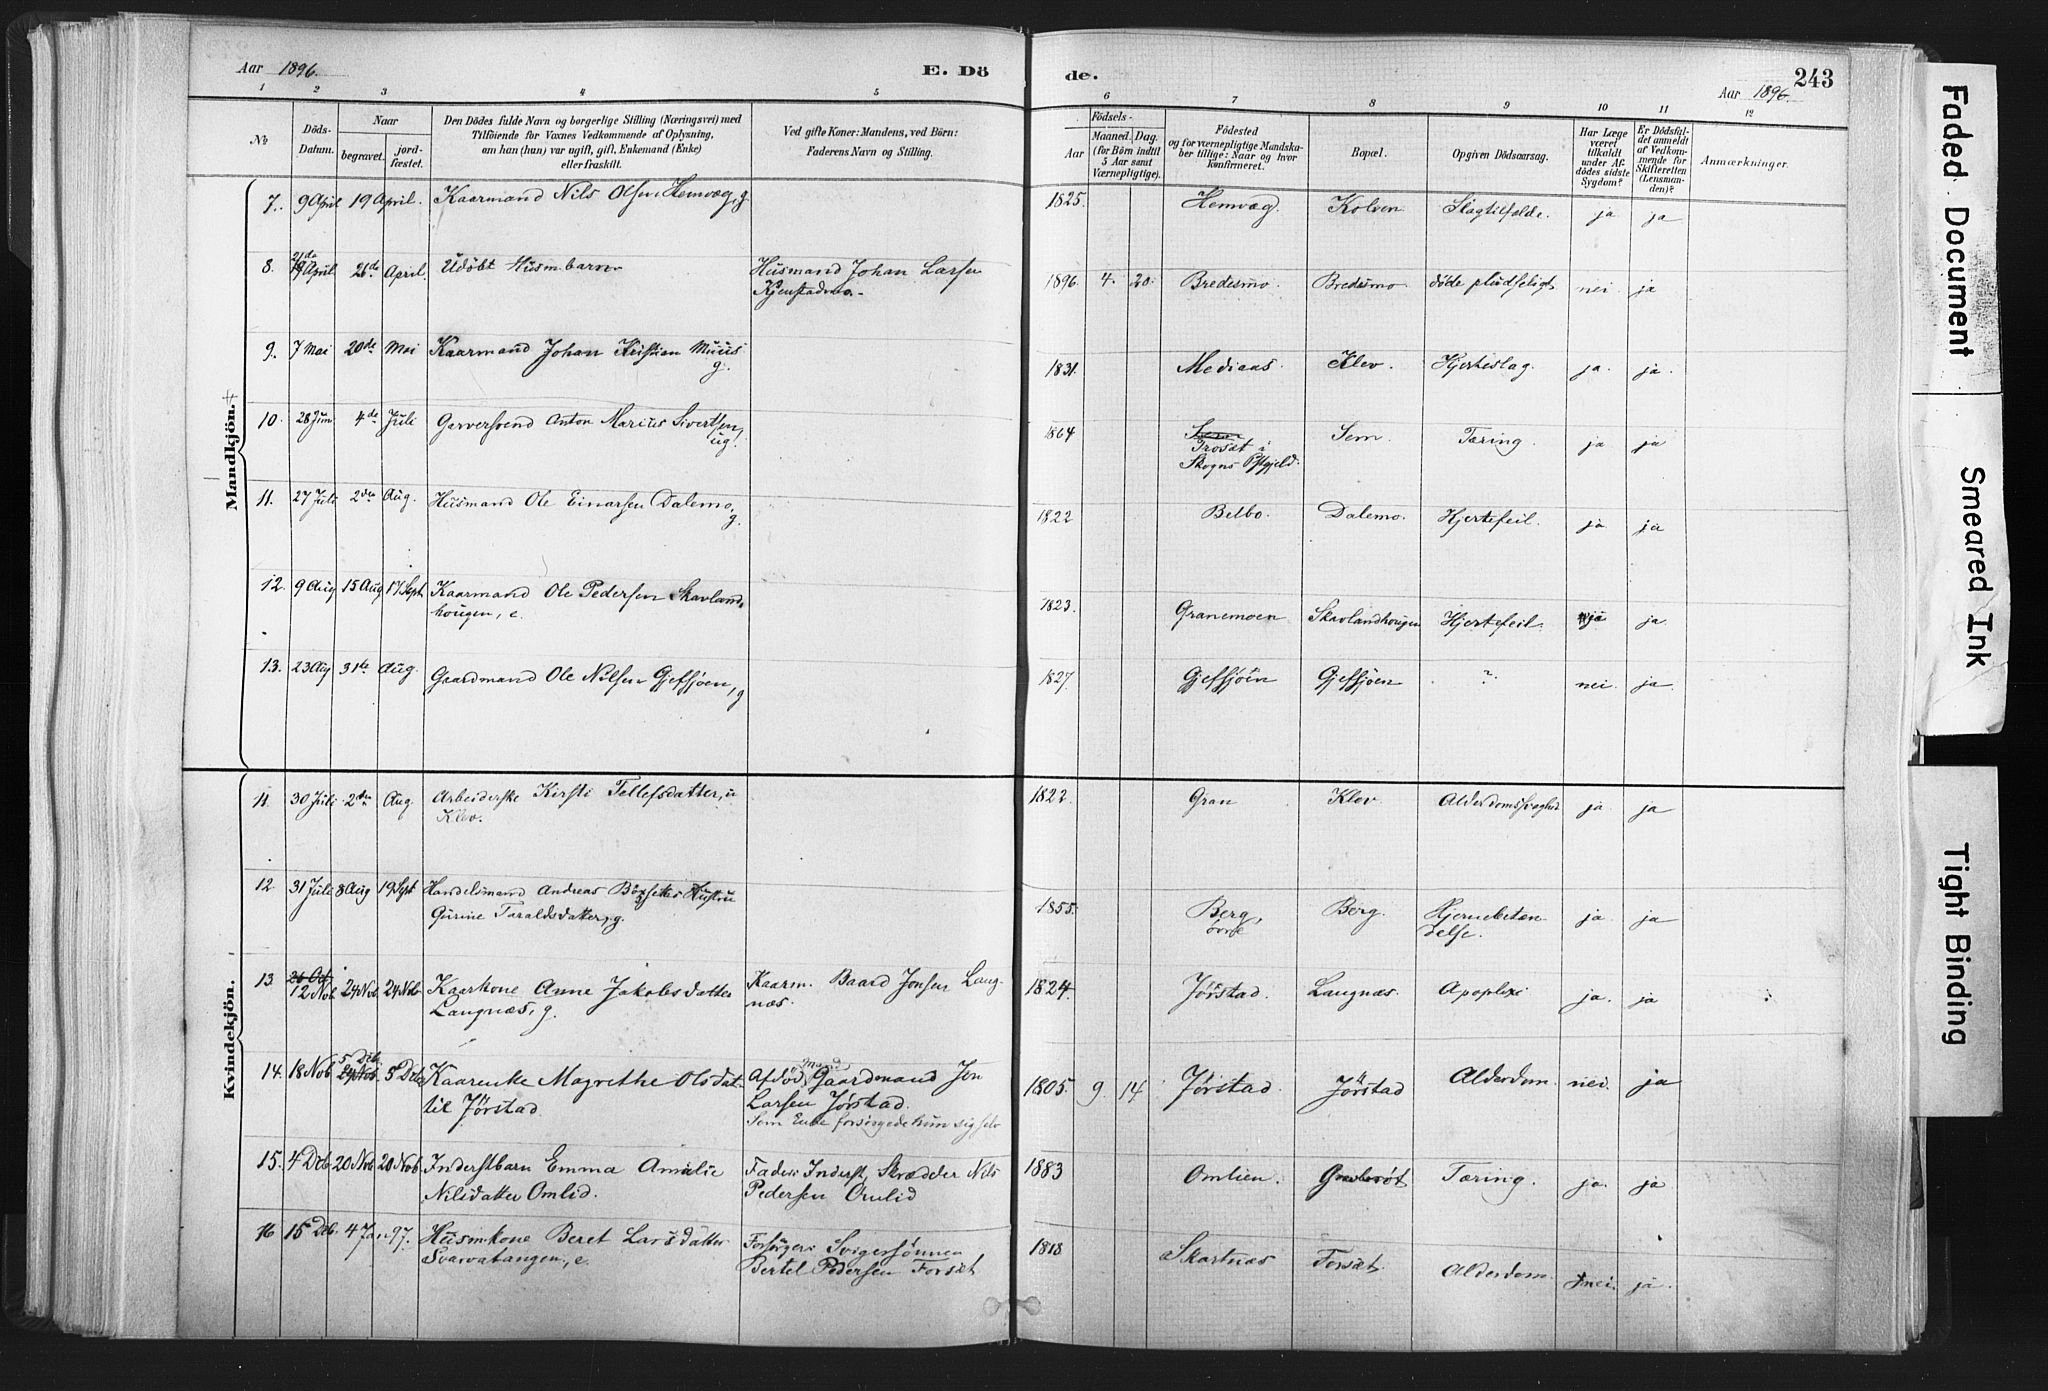 Aar 1896.
E. Dö
de.
Aar 1896.
243
1 2 3 4 5 6 7 8 9 10 11 12
№
Döds-
Datum.
Naar
begravet.
jord-
fæstet.
Den Dödes fulde Navn og borgerlige Stilling (Næringsvei) med
Tilföiende for Voxnes Vedkommende af Oplysning,
om han (hun) var ugift, gift, Enkemand (Enke)
eller fraskilt.
Ved gifte Koner: Mandens, ved Börn:
Faderens Navn og Stilling.
Födsels-
Aar
Maaned. Dag.
(for Börn indtil
5 Aar samt
Værnepligtige).
Födested
og for værnepligtige Mandska-
ber tillige: Naar og hvor
konfirmeret.
Bopæl.
Opgiven Dödsaarsag.
Har Læge
været
tilkaldt
under Af-
dödes sidste
Sygdom?
Er Dödsfal-
det anmeldt
af Vedkom-
mende for
Skifteretten
(Lensman-
den)?
Anmærkninger.
Mandkjön.
7. 9 April 19 April. Kaarmand Nils Olsen Hemvæg, g. 1825. Hemvæg Kolven Slagtilfælde. ja ja
8. 21de
April 26de April. Udöbt Husm.barn Husmand Johan Larsen
Kjenstadmo. 1896. 4. 20. Bredesmo. Bredesmo. döde pludseligt nei. ja
9. 7 Mai 20de Mai Kaarmand Johan Kristian Muus
g. 1831. Mediaas. Klev. Hjerteslag. ja. ja.
10. 28 Juni 4de Juli Garversvend Anton Marius Sivertsen,
ug. 1864 Sem
Trosæt i
Skogns Pstgjeld. Sem. Tæring. ja ja
11. 27 Juli 2den Aug. Husmand Ole Einarsen Dalemo,
g. 1822 Belbo. Dalemo. Hjertefeil. ja ja
12. 9 Aug 15 Aug 17 Sept Kaarmand Ole Pedersen Skavland-
hougen, e. 1823. Granemoen Skavlandhougen Hjertefeil. ja ja.
13. 23 Aug 31te Aug. Gaardmand Ole Nilsen Gjefsjøen, g 1827. Gjefsjøen Gjefsjøen ? nei. ja.
Kvindekjön.
11. 30 Juli 2den Aug. Arbeiderske Kirsti Tellefsdatter, u
Klev. 1822. Gran Klev. Alderdomssvaghed ja. ja
12. 31 Juli 8 Aug 19 Sept Handelsmand Andreas Hustru
Gurine Taraldsdatter, g. 1855. Berg,
övre Berg. Hjernebetæn-
delse. ja. ja
13. 26 Oct
12 Nob 24 Nob 24 Nob Kaarkone Anne Jakobsdatter
Langnæs, g. Kaarm. Baard Jonsen Lang-
næs. 1824. Jørstad. Langnæs. Apoplexi ja. ja
14. 18 Nob 5 Deb.
24 Nob 5 Deb Kaarenke Magrethe Olsdat.
til Jørstad Mand
Afdöd, Gaardmand Jon
Larsen Jørstad.
Som Enke forsörgede hun sig selv 1805. 9. 14 Jørstad. Jørstad Alderdom. nei. ja
15. 4 Deb 20 Nob 20 Nob Inderstbarn Emma Amalie
Nilsdatter Omlid. Fader: Inderst, Skrædder Nils
Pedersen Omlid 1883 Omlien. Tæring. ja. ja
16 15 Deb. 4 Jan 97. Husmkone Beret Larsdatter
Svarvatangen, e. Forsörger: Svigersönnen
Bertel Pedersen Forsæt 1818 Skartnæs Forsæt. Alderdom. nei. ja.
Faded Document
Smeared Ink
Tight Binding